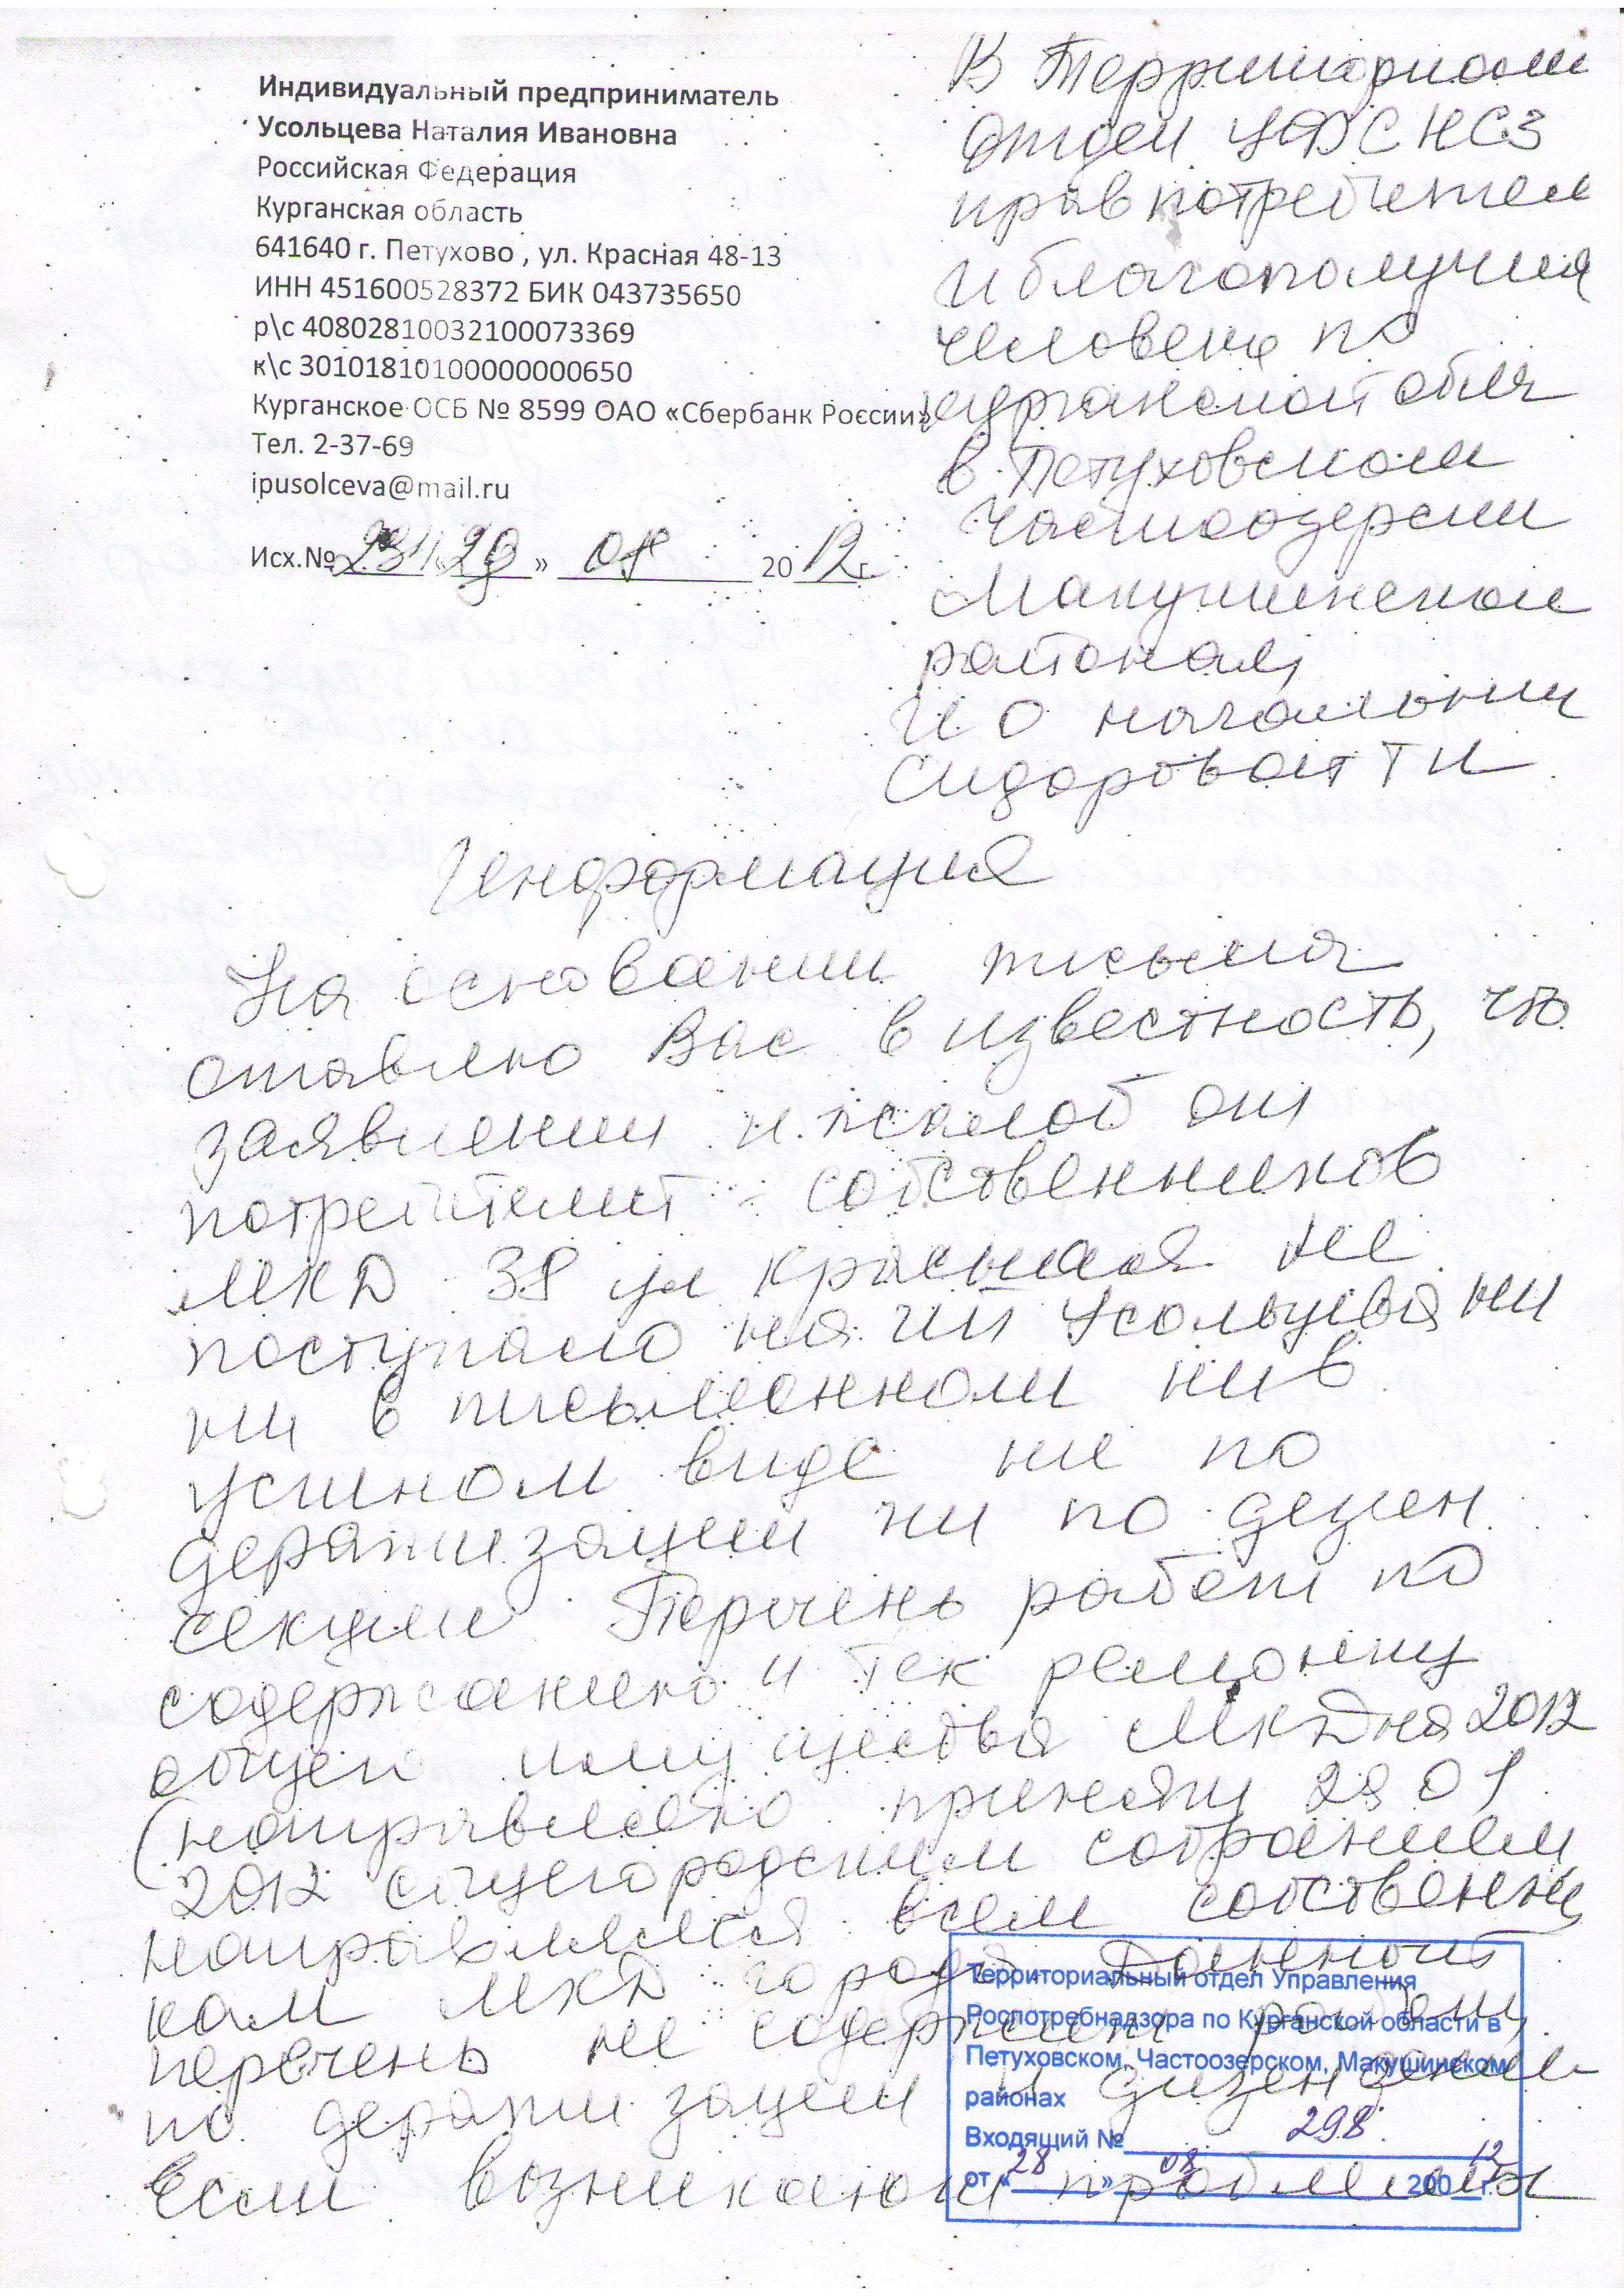 Индивидуальный предприниматель
Усольцева Наталия Ивановна
Российская Федерация
Курганская область
641640 г. Петухово , ул. Красная 48-13
ИНН 451600528372 БИК 043735650
р\с 40802810032100073369
к\с 30101810100000000650
Курганское ОСБ № 8599 ОАО «Сбербанк России»
Тел. 2-37-69
ipusolceva@mail.ru
Исх.№ « » 08 2012г.
В Территориали
Отдел УФСНСЗ
прав потребителей
и благополучия
человека по
курганской обла
в Петуховском
Частоозерским
Макушинском
районам
И О начальник
Сидоровой Т Н
Информация
На основании письма
ставлю Вас в известность, что
заявлении и жалоб от
потребителей - собственников
МКД 38 ул Красная не
поступало на ИП Усольцева ни
ни в письменном ни в
устном виде не по
дератизации ни по дезин
секции Перечень работ по
содержанию и тек ремонту
общего имущества МКД на 2012
(направлено приняты 28 01
2012 общегородским собранием
направлялся всем собственни
кам МКД города. Данной
перечень не содержит работы
по дератизации и
Если возникают проблемы
Территориальный отдел Управления
Роспотребнадзора по Курганской области в
Петуховском, Частоозерском, Макушинском
районах
Входящий № 298
от «28» 08 200 12 г.